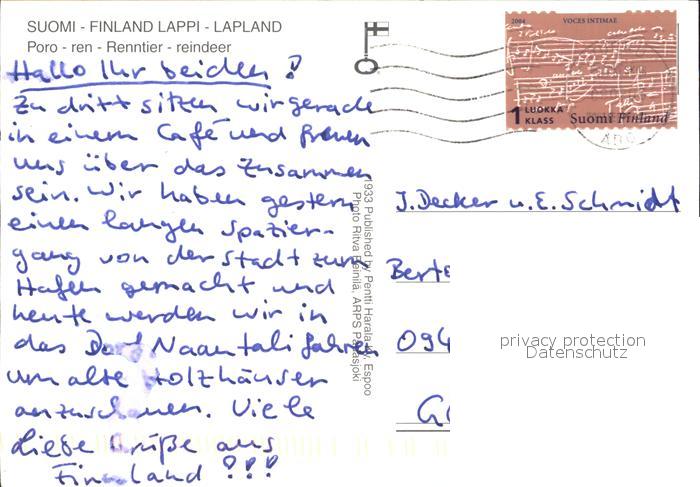 SUOMI - FINLAND LAPPI - LAPLAND
Poro - ren - Renntier - reindeer
Hallo Ihr beiden!
Zu dritt sitzen wir gerade
in einem Café und freuen
uns über das Zusammen
sein. Wir haben gestern
einen langen Spazier-
gang von der Stadt zum
Hafen gemacht und
heute werden wir in
das Dorf Naantali fahren
um alte Holzhäuser
anzuschauen. Viele
liebe Grüße aus
Finnland!!!
1933 Published by Pentti Harala Ky, Espoo
Photo Ritva ARPS
2004 VOCES INTIMAE
1 LUOKKA
KLASS
Suomi Finland
J. Decker u. E. Schmidt
Berte
094
privacy protection
Datenschutz